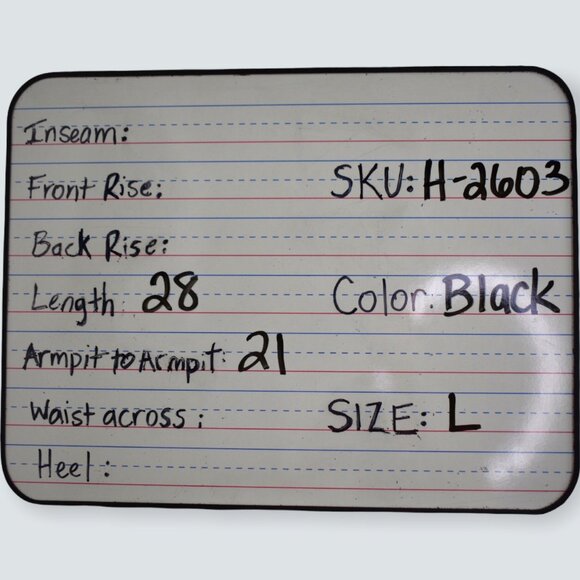 Inseam:
Front Rise: SKU: H-2603
Back Rise:
Length: 28 Color: Black
Armpit to Armpit: 21
Waist across: SIZE: L
Heel: